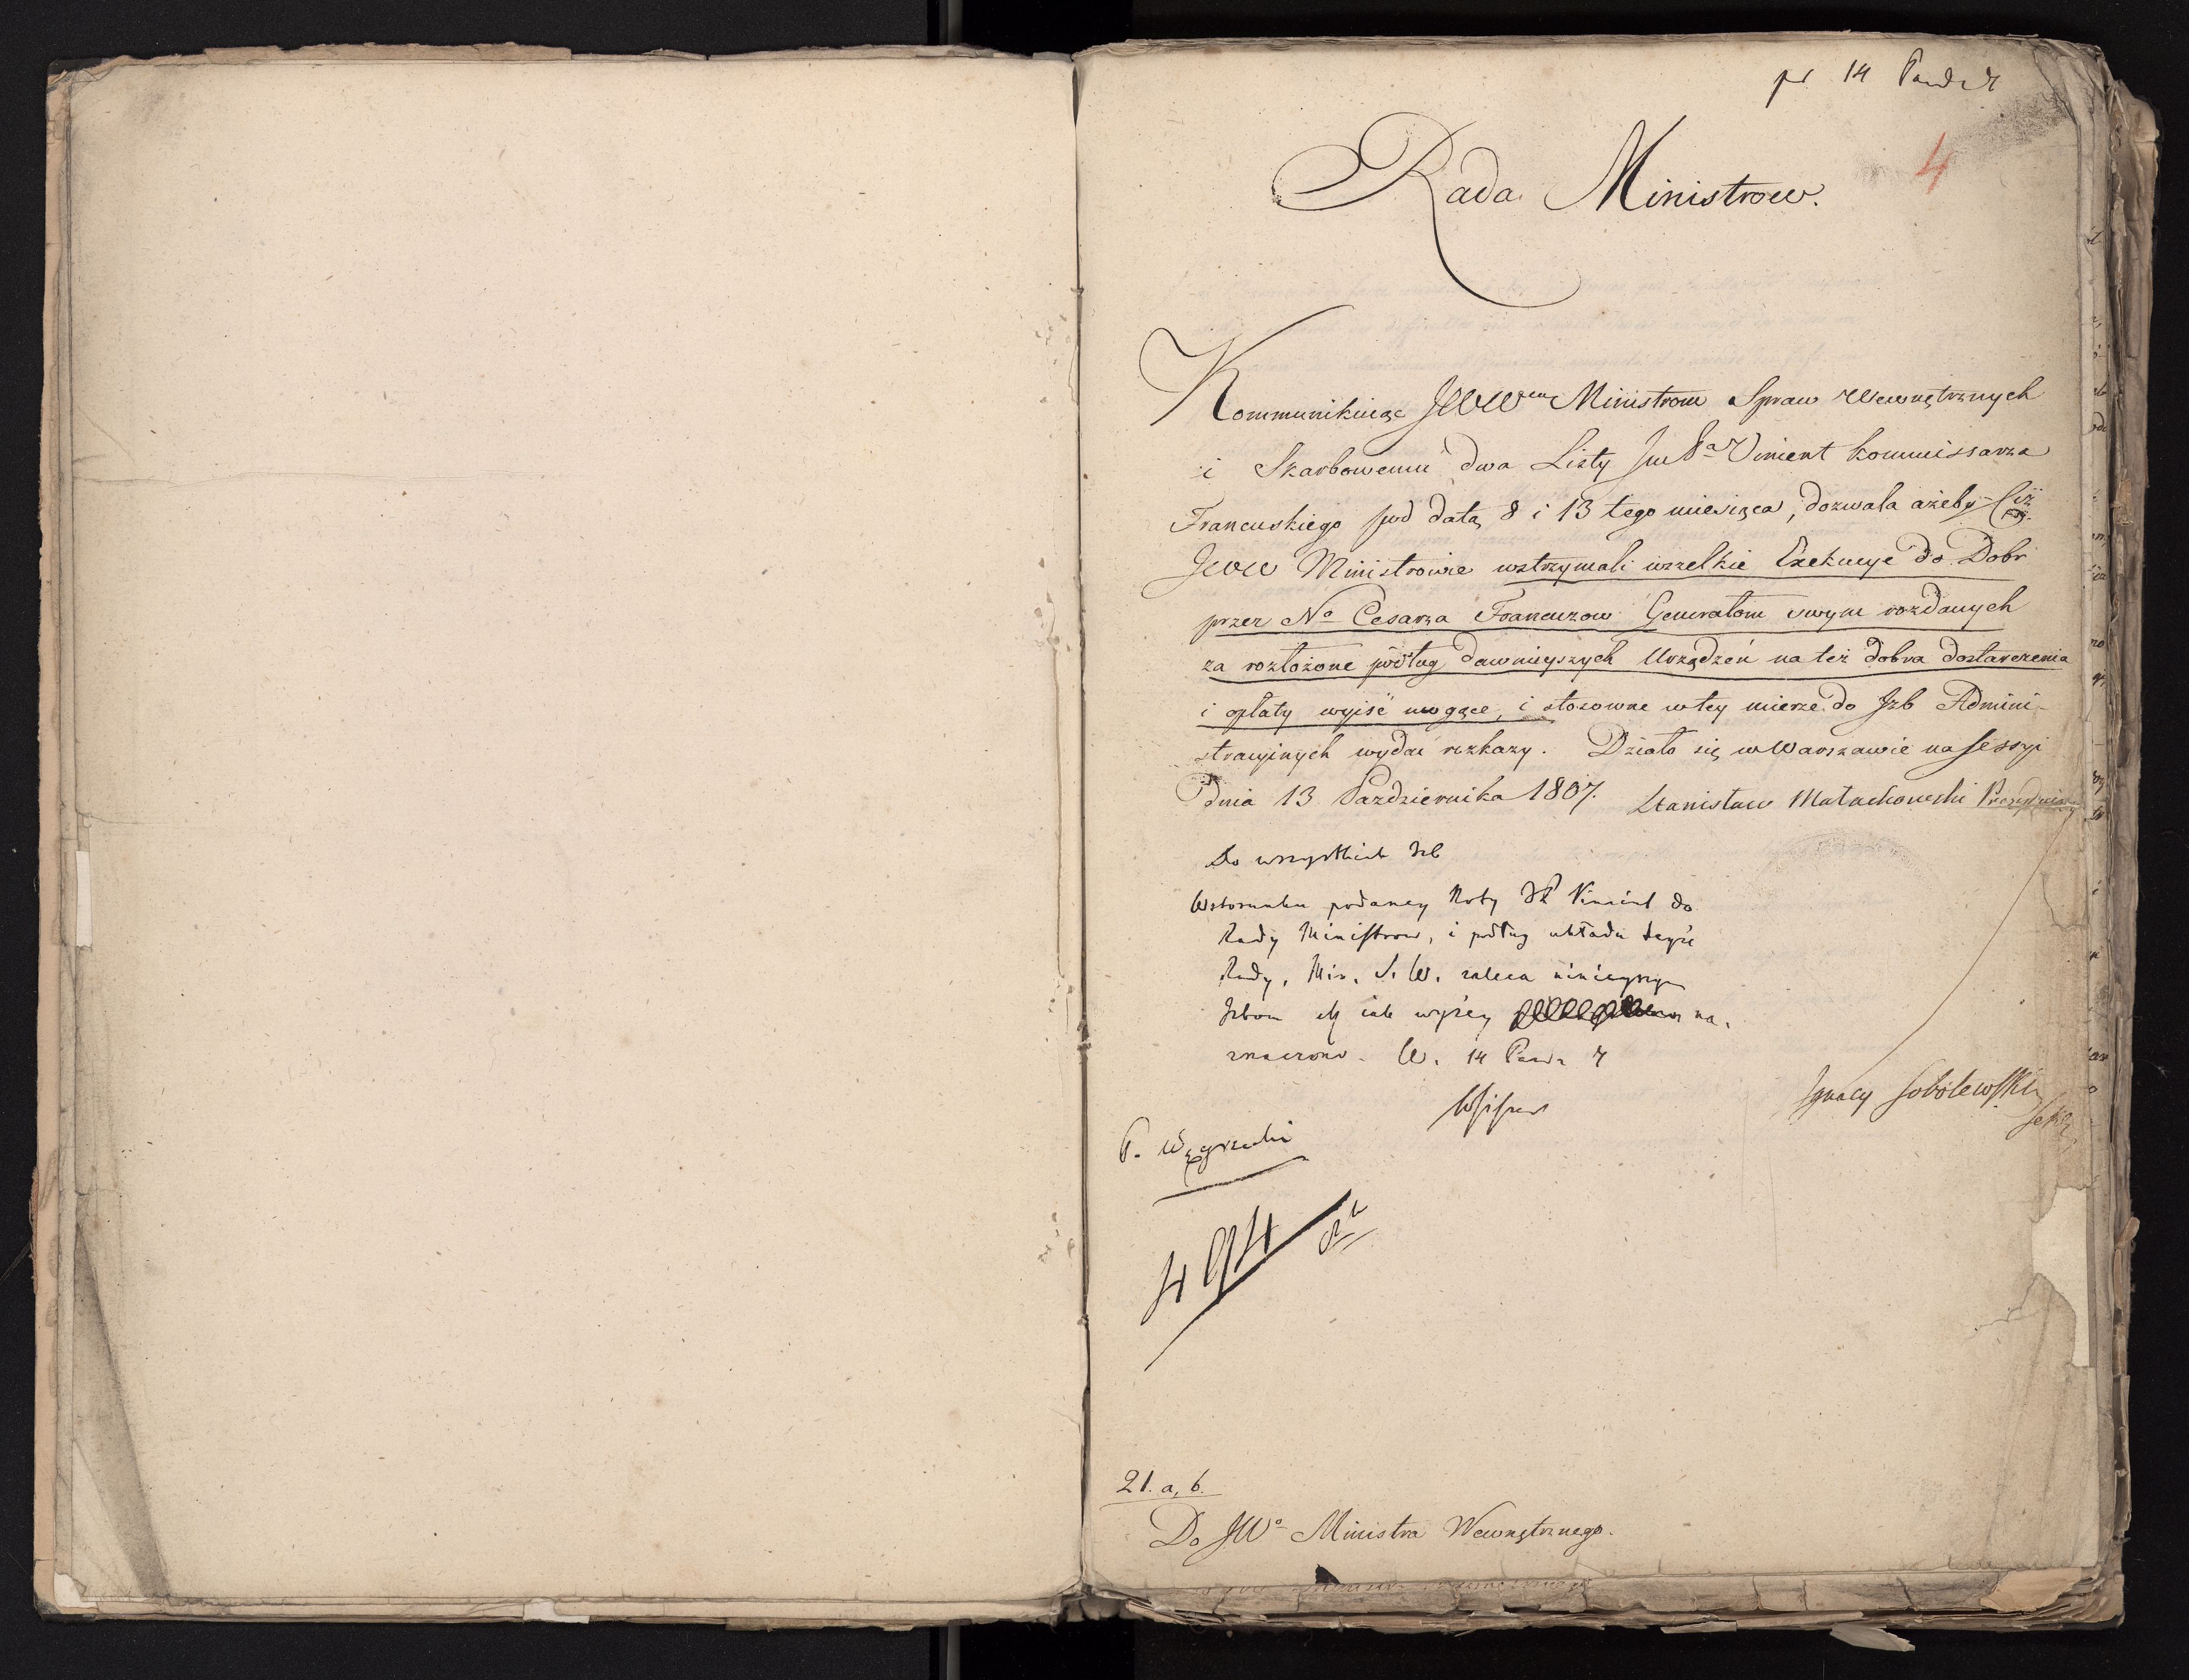 pr 14 Paźdz 7
4
Rada Ministrow.
Kommunikuiąc JWW Ministrom Spraw Wewnętrznych
i Skarbowemu dwa Listy Jm Pa Vincent Kommissarza
Francuskiego pod datą 8 i 13 tego miesiąca, dozwala ażeby Ciż
JWW Ministrowie wstrzymali wszelkie Exekucye do Dobr
przez No Cesarza Francuzow Generałom swym rozdanych
za rozłożone podług dawnieyszych Urządzeń na też dobra dostarczenia
i opłaty wyiść mogące, i stosowne w tey mierze do Izb Admini-
stracyinych wydać rozkazy. Działo się w Warszawie na Sessyi
dnia 13 Pazdziernika 1807. Stanisław Małachowski Prezyduiący
Do wszystkich Izb
W stosunku podaney Noty JP Vincent do
Rady Ministrow, i podług układu teyże
Rady, Min. S. W. zaleca ninieyszym
Izbom iak wyżey na-
znaczono. W. 14 Paźdz 7
Ignacy Sobolewski
Sekr
P. Węgrzecki
494
21. a, b.
Do JWo Ministra Wewnętrznego.